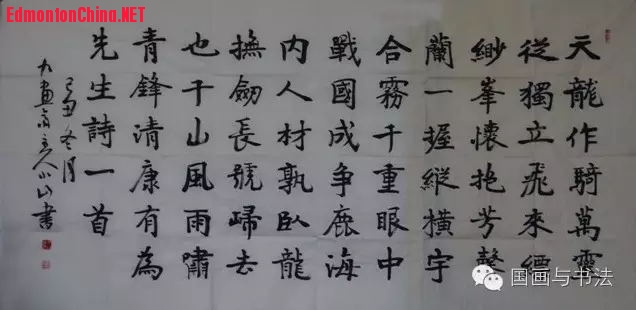 EdmontonChina.NET
天龍作騎萬靈
從獨立飛來縹
緲峯懷抱芳馨
蘭一握縱橫宇
合霧千重眼中
戰國成争鹿海
内人材孰臥龍
撫劒長號歸去
也千山風雨嘯
青鋒清康有為
先生詩一首
己丑冬月
畫斋主人小山書
国画与书法